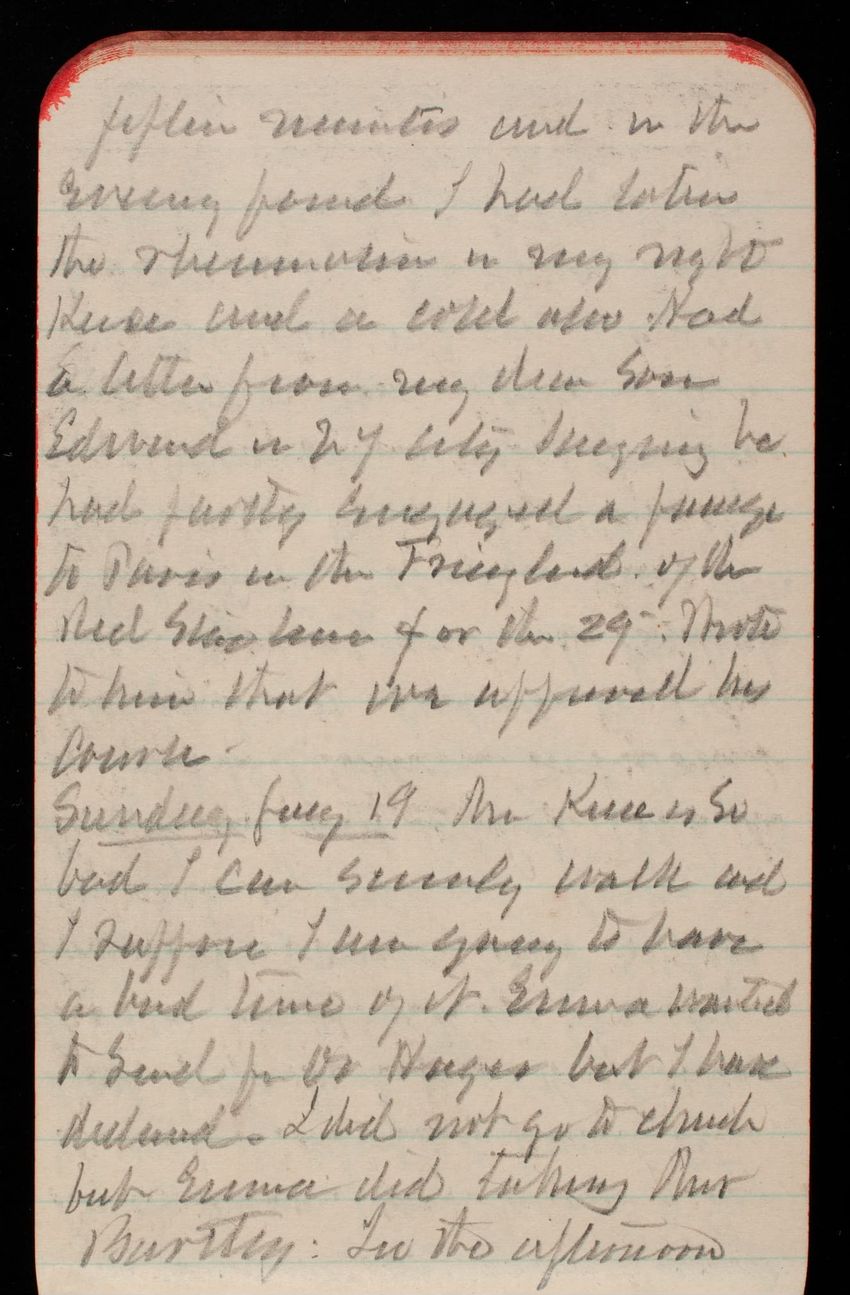 fifteen minutes and in the
Evening found I had taken
the rheumatism in my right
Knee and a cold also Had
a letter from my dear Son
Edward in N Y city saying he
had partly engaged a passage
to Paris in the Friesland of the
Red Star line for the 29". Wrote
to him that we approved his
Course
Sunday Jany 19 The Knee is So
bad I can Scarcely walk and
I suppose I am going to have
a bad time of it. Emma wanted
to Send for Dr Hayes but I have
declined. I did not go to church
but Emma did taking Mrs
Bartley: In the afternoon